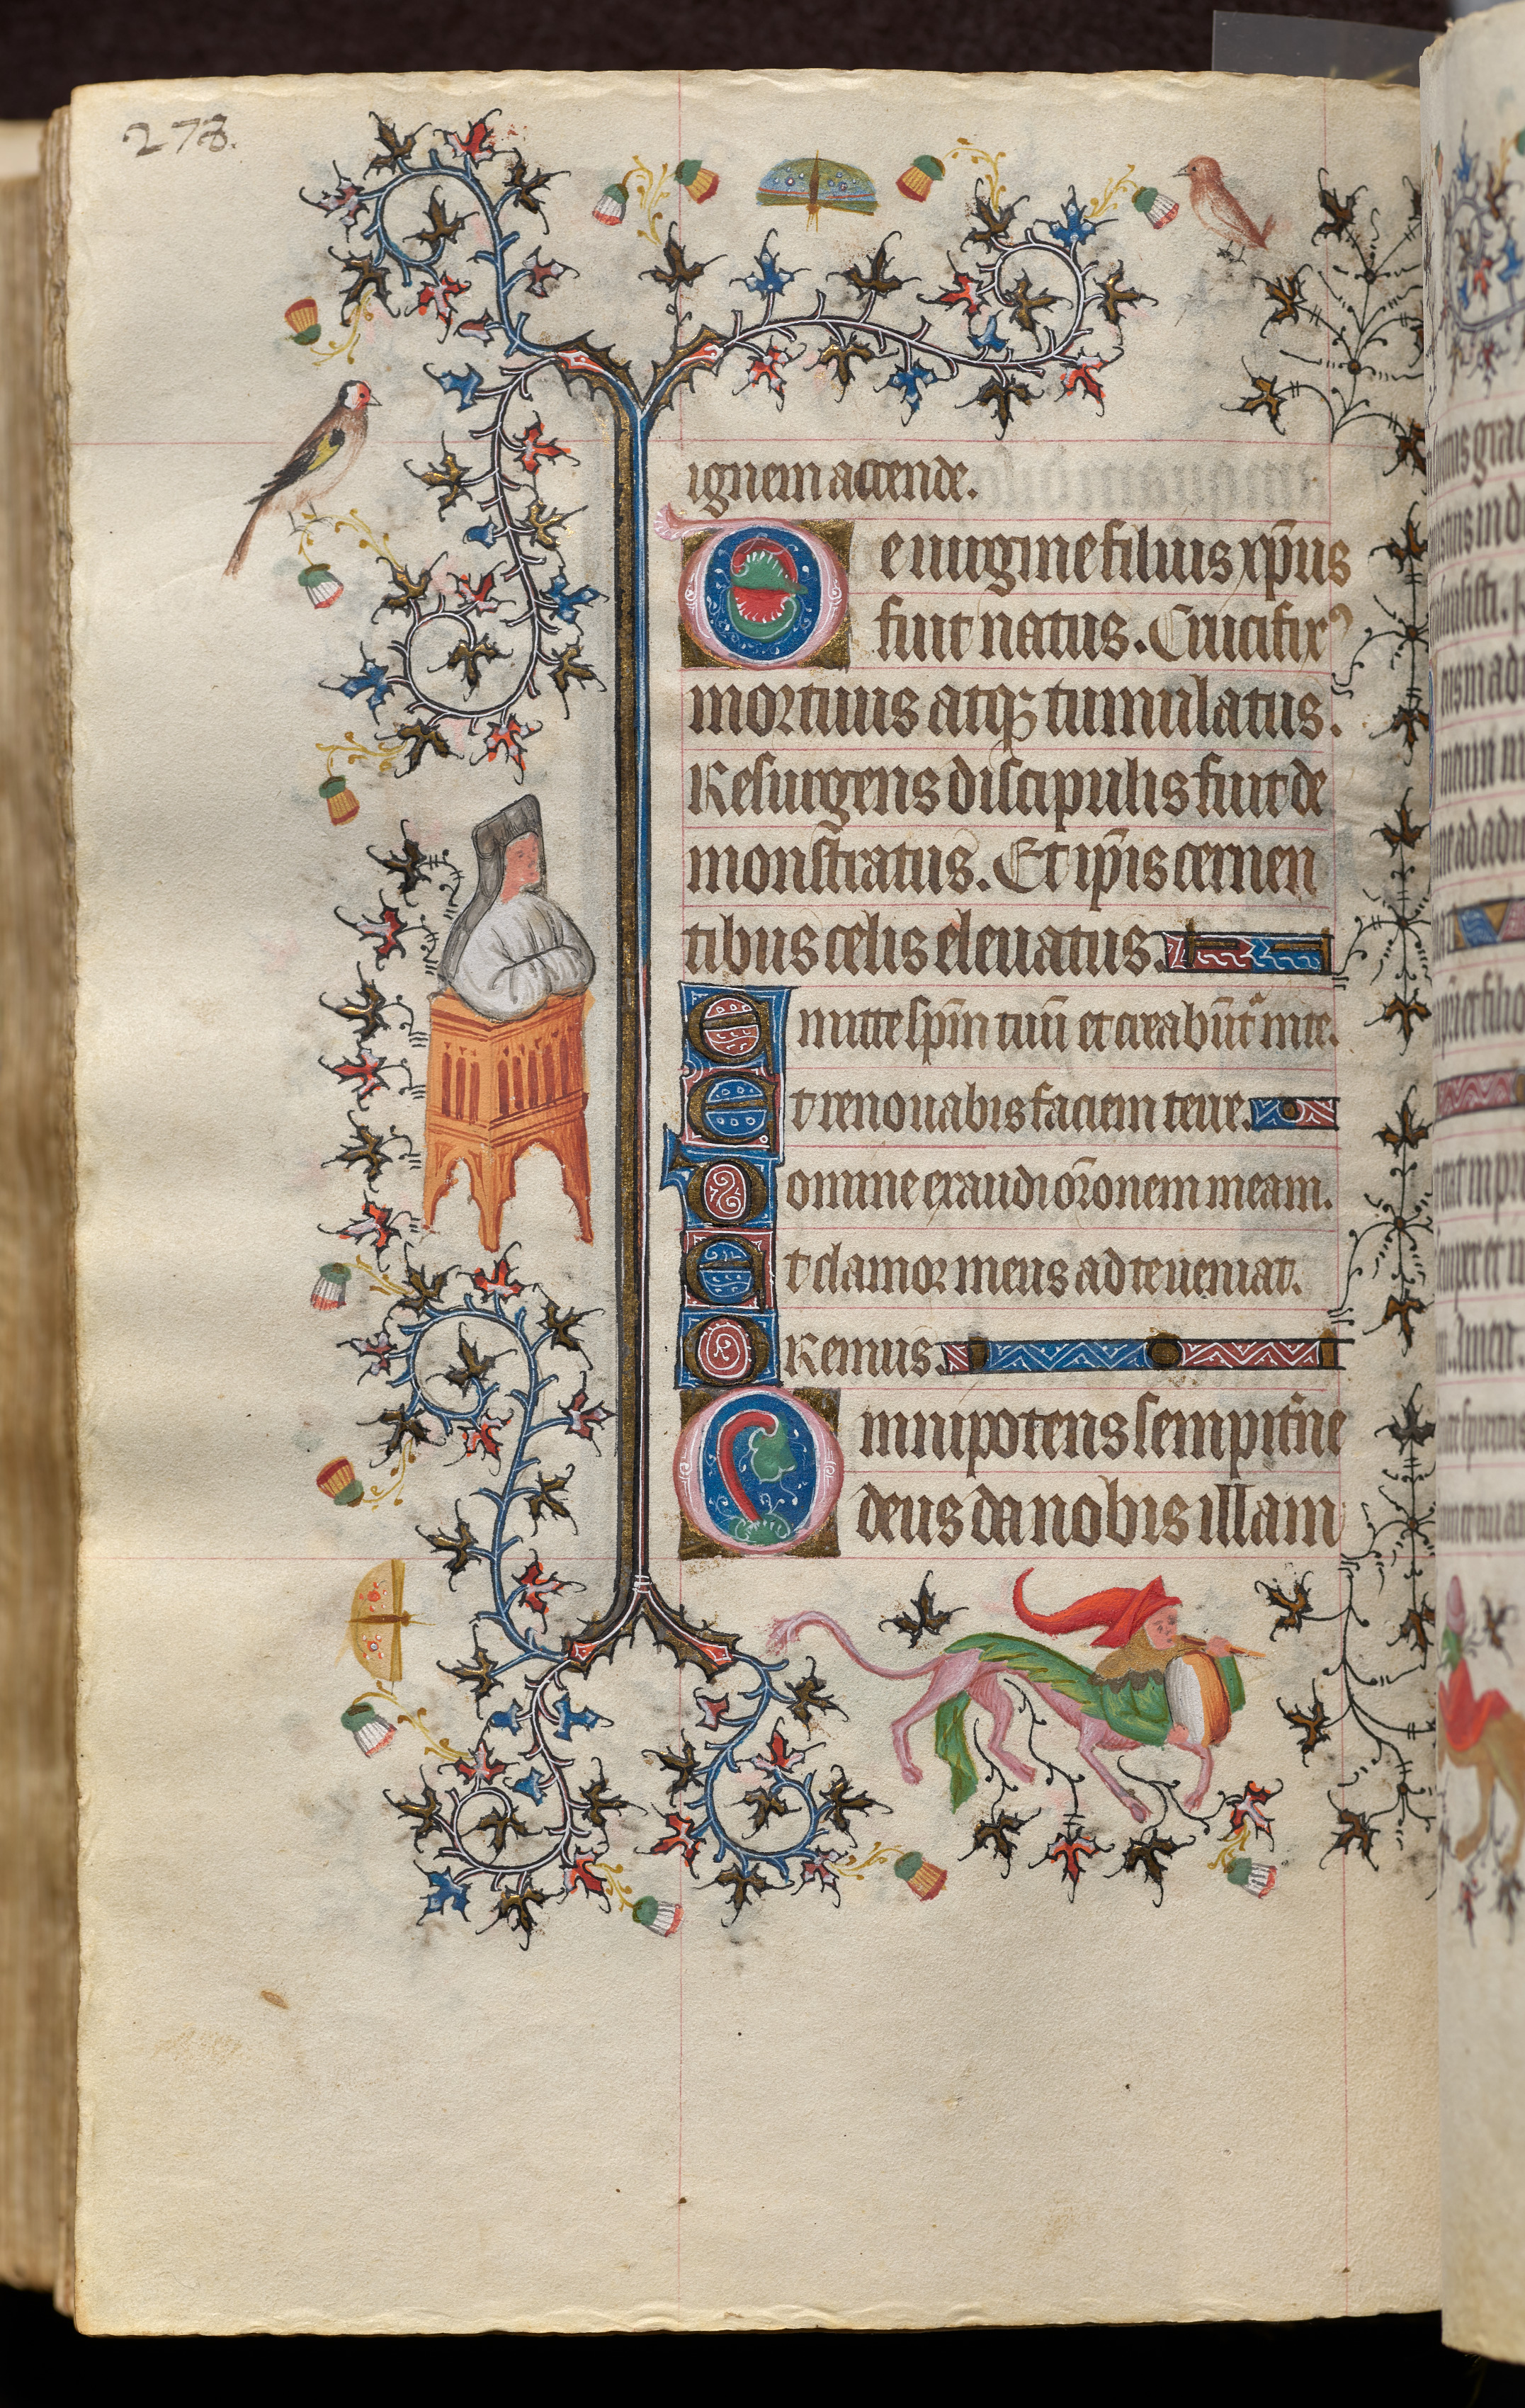 278.
ignem accende.
De uirgine filius xp̄us
fuit natus. Crucifixꝰ
mortuus atqꝫ tumulatus.
Resurgens discipulis fuit de
monstratus. Et ip̄is cernen
tibus celis eleuatus.
Emitte sp̄m tuū et creabūt᷑ inte.
Et renouabis faciem terre.
Domine exaudi or̄onem meam.
Et clamor meus ad te ueniat.
Oremus.
Omnipotens sempit̄ne
deus da nobis illam